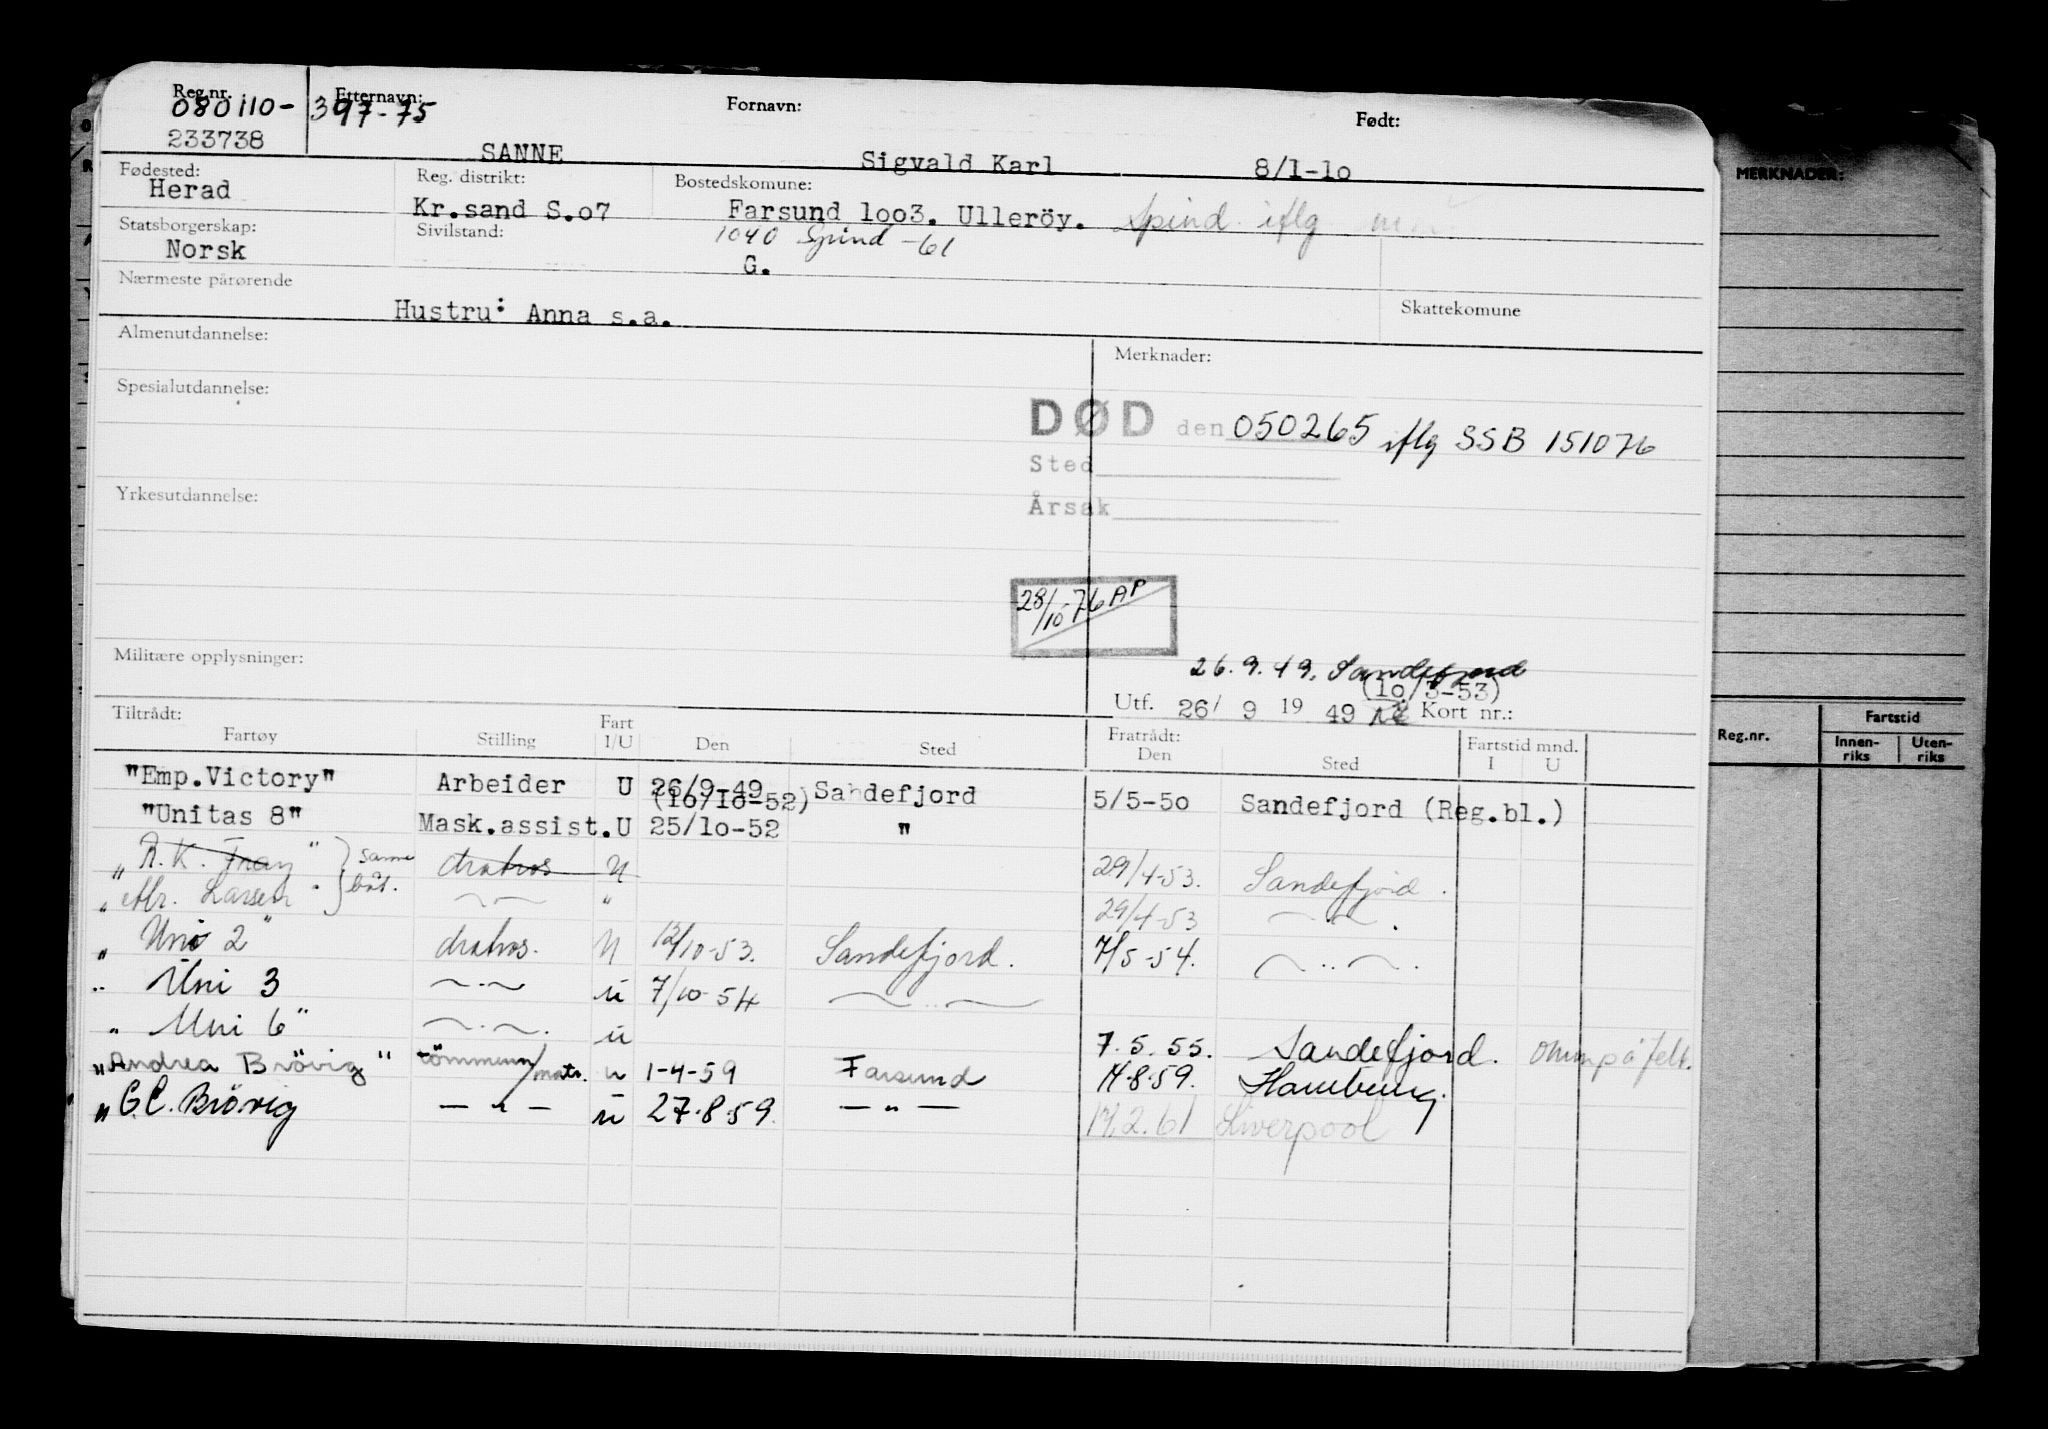 Reg.nr. Etternavn: Fornavn: Født:
080110-397-75
233738 SANNE Sigvald Karl 8/1-1o
Fødested: Reg. distrikt: Bostedskomune:
Herad Kr.sand S.o7 Farsund 1oo3. Ulleröy. Spind iflg
Statsborgerskap: Sivilstand: 1040 Spind -61
Norsk G.
Nærmeste pårørende
Hustru: Anna s.a. Skattekomune
Almenutdannelse: Merknader:
Spesialutdannelse:
DØD den 050265 iflg SSB 151076
Sted
Yrkesutdannelse:
Årsak
28/10-76 AP
Militære opplysninger:
26.9.49. Sandefjord
(1o/3-53)
Utf. 26/ 9 19 49 Kort nr.:
Tiltrådt: Fratrådt:
Fartøy Stilling Fart I/U Den Sted Den Sted Fartstid mnd. I U
"Emp.Victory" Arbeider U 26/9-49 Sandefjord 5/5-5o Sandefjord (Reg.bl.)
(16/1o-52)
"Unitas 8" Mask.assist. U 25/1o-52 "
"R. K. Fray" } samme båt. matros U 29/4-53. Sandefjord.
"Abr. Larsen" — " 29/4-53 — " — .
"Uni 2" matros. U 12/10-53. Sandefjord. 7/5-54. — " — .
" Uni 3 — " — u 7/10-54 — " —
" Uni 6" — " — . u 7.5.55. Sandefjord. omm på felt.
"Andrea Brövig" tömmerm/matr. u 1-4-59 Farsund 14.8.59. Hamburg.
"G.C. Brövig — " — u 27.8.59. — " — 14.2.61 Liverpool
MERKNADER:
Reg.nr. Fartstid
Innen-riks Uten-riks